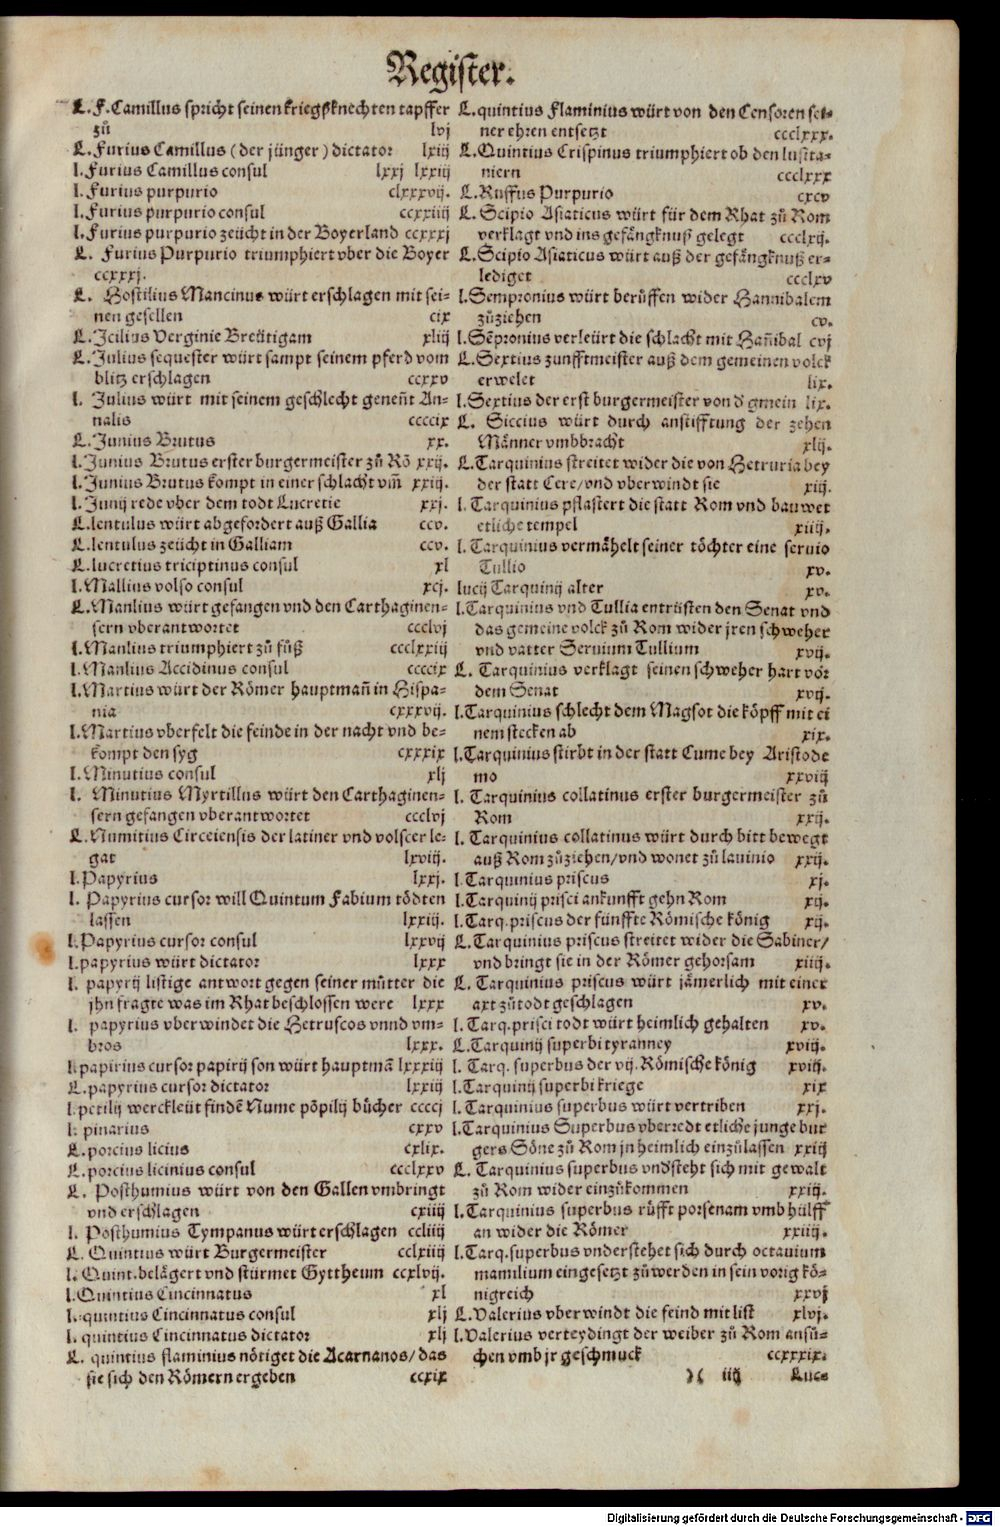 Register.
L.F.Camillus spricht seinen kriegßknechten tapffer
zů lvj
L.Furius Camillus (der jünger) dictator lxiij
l.Furius Camillus consul lxxj lxxiij
l.Furius purpurio clxxxvij.
l.Furius purpurio consul ccxxiiij
l.Furius purpurio zeücht in der Boyerland ccxxxj
L. Furius Purpurio triumphiert vber die Boyer
ccxxxj.
L. Hostilius Mancinus würt erschlagen mit sei-
nen gesellen cix
L.Icilius Verginie Breütigam xliij
L.Julius sequester würt sampt seinem pferd vom
blitz erschlagen ccxxv
l. Julius würt mit seinem geschlecht geneñt An-
nalis ccccix
L.Junius Brutus xx.
l.Junius Brutus erster burgermeister zů Rō xxij.
l.Junius Brutus kompt in einer schlacht vm̄ xxiij.
l.Junij rede vber dem todt Lucretie xxj.
L.lentulus würt abgefordert auß Gallia ccv.
L.lentulus zeücht in Galliam ccv.
L.lucretius triciptinus consul xl
l.Mallius volso consul xcj.
L.Manlius würt gefangen vnd den Carthaginen-
sern vberantwortet ccclvj
l.Manlius triumphiert zů fůß ccclxxiij
l.Manlius Accidinus consul ccccix
l.Martius würt der Römer hauptmañ in Hispa-
nia cxxxvij.
l.Martius vberfelt die feinde in der nacht vnd be-
kompt den syg cxxxix
l.Minutius consul xlj
l. Minutius Myrtillus würt den Carthaginen-
sern gefangen vberantwortet ccclvj
L.Numitius Circeiensis der latiner vnd volscer le-
gat lxviij.
l.Papyrius lxxj.
l. Papyrius cursor will Quintum Fabium tödten
lassen lxxiij.
l.Papyrius cursor consul lxxvij
l.papyrius würt dictator lxxx
l. papyrij listige antwort gegen seiner můtter die
jhn fragte was im Rhat beschlossen were lxxx
l. papyrius vberwindet die Hetruscos vnnd vm-
bros lxxx.
l.papirius cursor papirij son würt hauptmā lxxxiij
L.papyrius cursor dictator lxxiij
l.petilij werckleüt findē Nume pōpilij bůcher ccccj
l. pinarius cxxv
L.porcius licius cxlix.
L.porcius licinius consul ccclxxv
L. Posthumius würt von den Gallen vmbringt
vnd erschlagen cxiiij
l. Posthumius Tympanus würt erschlagen ccliiij
L. Quintius würt Burgermeister cclxiiij
l. Quint.belägert vnd stürmet Gyttheum ccxlvij.
l.Quintius Cincinnatus xl
l.quintius Cincinnatus consul xlj
l. quintius Cincinnatus dictator xlj
L. quintius flaminius nötiget die Acarnanos/ das
sie sich den Römern ergeben ccxix
L.quintius Flaminius würt von den Censoren sei-
ner ehren entsetzt ccclxxx.
L.Quintius Crispinus triumphiert ob den lusita-
niern ccclxxx
L.Ruffus Purpurio cxcv
L. Scipio Asiaticus würt für dem Rhat zů Rom
verklagt vnd ins gefängknuß gelegt ccclxij.
L.Scipio Asiaticus würt auß der gefängknuß er-
lediget ccclxv
l.Sempronius würt berůffen wider Hannibalem
zůziehen cv.
l.Sēpronius verleürt die schlacht mit Hañibal cvj
L.Sextius zunfftmeister auß dem gemeinen volck
erwelet lix.
l.Sextius der erst burgermeister von d' gmein lix.
L. Siccius würt durch anstifftung der zehen
Männer vmbbracht xlij.
L.Tarquinius streitet wider die von Hetruria bey
der statt Cere/vnd vberwindt sie xiij.
l. Tarquinius pflastert die statt Rom vnd bauwet
etliche tempel xiiij.
l. Tarquinius vermähelt seiner töchter eine seruio
Tullio xv.
lucij Tarquinij alter xv.
l.Tarquinius vnd Tullia entrüsten den Senat vnd
das gemeine volck zů Rom wider jren schweher
vnd vatter Seruium Tullium xvij.
L. Tarquinius verklagt seinen schweher hart vor
dem Senat xvij.
l.Tarquinius schlecht dem Magsot die köpff mit ei
nem stecken ab xix.
l.Tarquinius stirbt in der statt Cume bey Aristode
mo xxviij
l. Tarquinius collatinus erster burgermeister zů
Rom xxij.
l. Tarquinius collatinus würt durch bitt bewegt
auß Rom zůziehen/vnd wonet zů lauinio xxij.
l.Tarquinius priscus xj.
l.Tarquinij prisci ankunfft gehn Rom xij.
l.Tarq.priscus der fünffte Römische König xij.
L.Tarquinius priscus streitet wider die Sabiner/
vnd bringt sie in der Römer gehorsam xiiij.
L. Tarquinius priscus würt jämerlich mit einer
axt zůtodt geschlagen xv.
l.Tarq.prisci todt würt heimlich gehalten xv.
L.Tarquinij superbi tyranney xviij.
l. Tarq. superbus der vij. Römische König xviij.
l.Tarquinij superbi kriege xix
l.Tarquinius superbus würt vertriben xxj.
l.Tarquinius Superbus vberredt etliche junge bur
gers Söne zů Rom jn heimlich einzůlassen xxiij
L. Tarquinius superbus vndsteht sich mit gewalt
zů Rom wider einzůkommen xxiij.
l.Tarquinius superbus růfft porsenam vmb hülff
an wider die Römer xxiij.
l.Tarq.superbus vnderstehet sich durch octauium
mamilium eingesetzt zů werden in sein vorig kö-
nigreich xxvj
L.Valerius vberwindt die feind mit list xlvj.
l.Valerius verteydingt der weiber zů Rom ansů-
chen vmb jr geschmuck ccxxxix.
)( iij Luc-
Digitalisierung gefördert durch die Deutsche Forschungsgemeinschaft - DFG